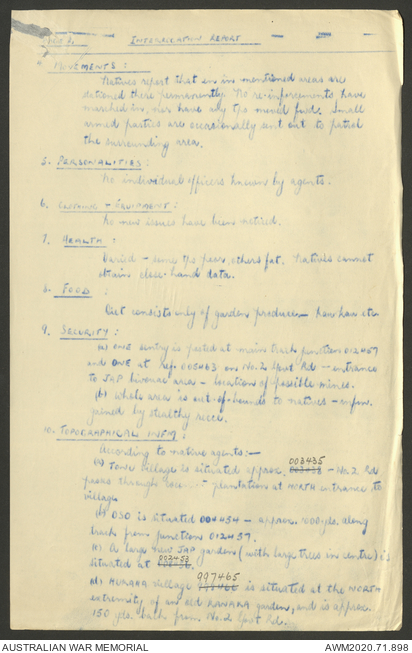 INTERROGATION REPORT
MOVEMENTS :
Natives report that en in mentioned areas are
detained there permanently. No re-inforcements have
marched in, nor have any tps moved fwd. Small
armed parties are occasionally sent out to patrol
the surrounding area.
5. PERSONALITIES :
No individual officers known by agents.
6. CLOTHING + EQUIPMENT :
No new issues have been noticed.
7. HEALTH :
Varied - some tps poor, others fat. Natives cannot
obtain close-hand data.
8. FOOD :
Diet consists only of garden produce - kau kau etc.
9. SECURITY :
(a) ONE sentry is posted at main track junction 012457
and ONE at ref. 005463 on No. 2 Govt Rd - entrance
to JAP bivouac area - location of possible mines.
(b) Whole area is out-of-bounds to natives - infm.
gained by stealthy recce.
10. TOPOGRAPHICAL INFM :
According to native agents :-
(a) TONU village is situated approx. 003435 - No. 2 Rd
passes through coconut plantation at NORTH entrance to
village
(b) OSO is situated 004454 - approx. 1000 yds. along
track from junction 012457.
(c) A large new JAP garden (with large trees in centre) is
situated at 003453
(d) village 997465 is situated at the NORTH
extremity of an old KANAKA garden, and is approx.
150 yds. back from No. 2 Govt Rd.
AUSTRALIAN WAR MEMORIAL
AWM2020.71.898